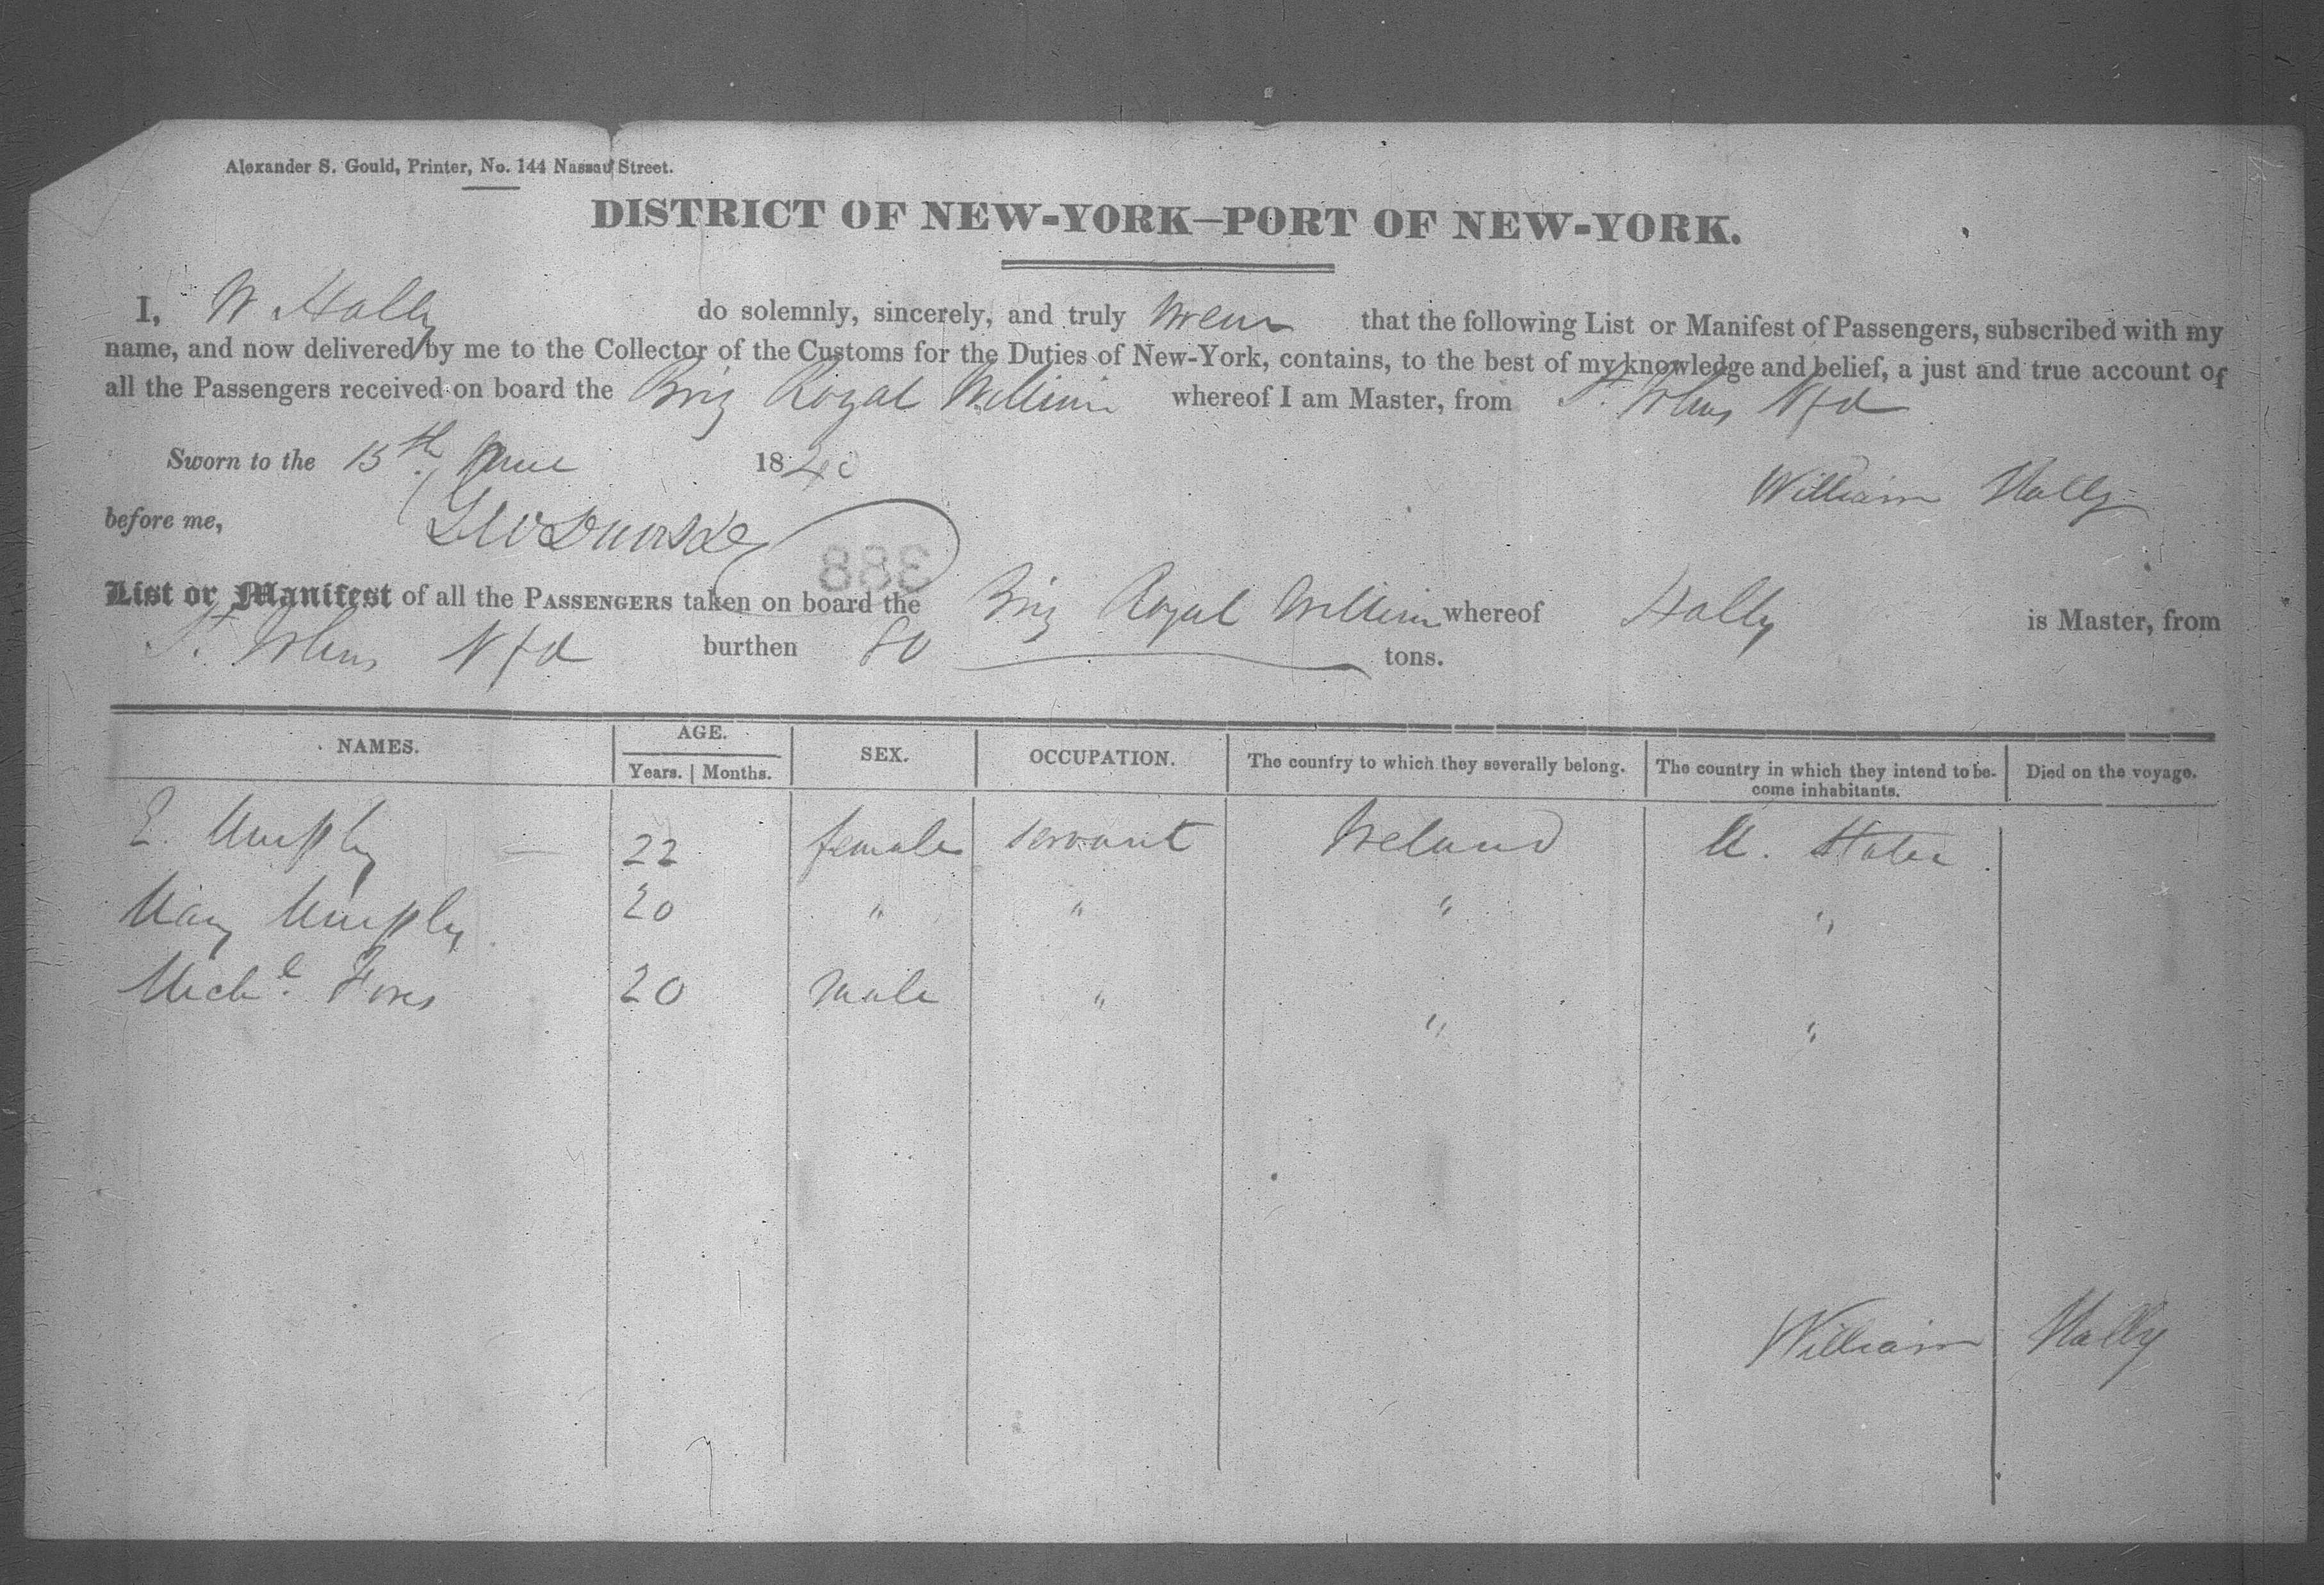 Alexander S. Gould, Printer, No. 144 Nassau Street.
DISTRICT OF NEW-YORK—PORT OF NEW-YORK.
I, W Hally do solemnly, sincerely, and truly swear that the following List or Manifest of Passengers, subscribed with my
name, and now delivered by me to the Collector of the Customs for the Duties of New-York, contains, to the best of my knowledge and belief, a just and true account of
all the Passengers received on board the Brig Royal William whereof I am Master, from St. Johns Nfd
Sworn to the 15th June 1840
William Hally
before me,
388
List or Manifest of all the PASSENGERS taken on board the Brig Royal William whereof Hally is Master, from
St. Johns Nfd burthen 80 tons.
NAMES. AGE. SEX. OCCUPATION. The country to which they severally belong. The country in which they intend to become inhabitants. Died on the voyage.
Years. Months.
E. Murphy 22 female servant Ireland U. States
Mary Murphy 20 " " " "
Michl. 20 male " " "
William Hally